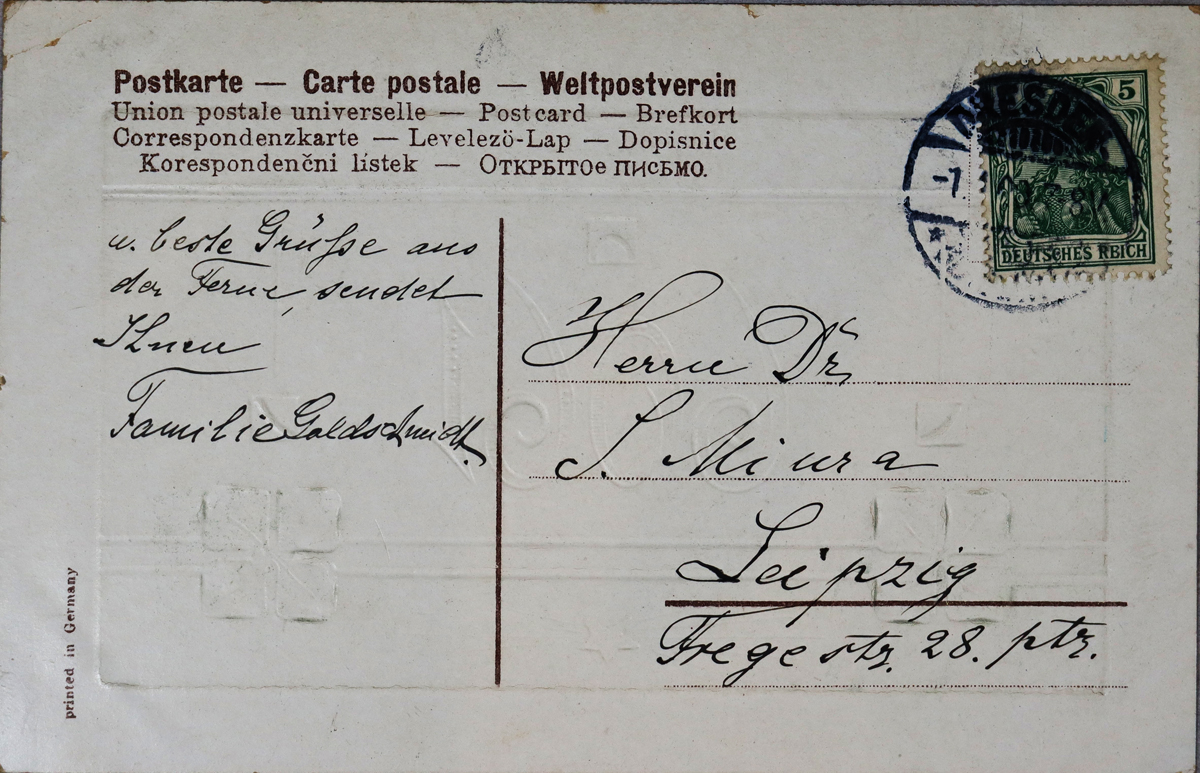 Postkarte — Carte postale — Weltpostverein
Union postale universelle — Postcard — Brefkort
Correspondenzkarte — Levelezö-Lap — Dopisnice
Korespondenčni lístek — ОТКРЫТОе ПИСЬМО.
5
DRESDEN
-1.
8 V.
DEUTSCHES REICH
u. beste Grüße aus
der Ferne, sendet
Ihnen
Familie Goldschmidt.
Herrn Dr.
S. Miura
Leipzig
Fregestr. 28. ptr.
printed in Germany